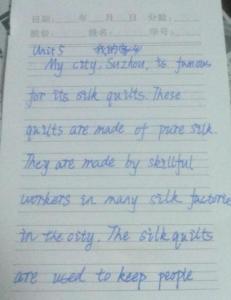 日期: 年 月 日 分数:
班级: 姓名: 学号:
Unit 5 我的家乡
My city, Suzhou, is famous
for its silk quilts. These
quilts are made of pure silk.
They are made by skillful
workers in many silk factorie
in the city. The silk quilts
are used to keep people